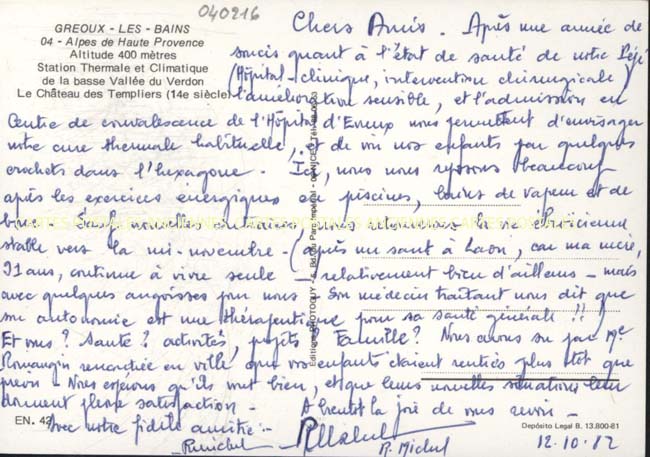 040216
GREOUX - LES - BAINS
04 - Alpes de Haute Provence
Altitude 400 mètres
Station Thermale et Climatique
de la basse Vallée du Verdon
Le Château des Templiers (14e siècle)
Chers Amis. Après une année de
soucis quant à l'état de santé de notre Pépé
(Hôpital - clinique, intervention chirurgicale)
l'amélioration sensible, et l'admission en
Centre de convalescence de l'Hôpital d'Evreux nous permettent d'envisager
notre cure thermale habituelle, et de voir nos enfants par quelques
crochets dans l'hexagone. Ici, nous nous reposons beaucoup
après les exercices énergiques en piscines, bains de vapeur et de
boue. Sauf nouvelles contraires, nous retrouverons la vie ébroïcienne
stable vers la mi-novembre - (après un saut à Laon, car ma mère,
91 ans, continue à vivre seule - relativement bien d'ailleurs - mais
avec quelques angoisses pour nous. Son médecin traitant nous dit que
son autonomie est une thérapeutique pour sa santé générale !!
Et vous ? Santé ? activités, projets ? Famille ? Nous avons su par Me
rencontrée en ville que vos enfants étaient rentrés plus tôt que
prévu. Nous espérons qu'ils vont bien, et que leurs nouvelles situations leur
donnent pleine satisfaction. A bientôt la joie de vous revoir -
Avec notre fidèle amitié.-
R. Michel
12.10.82
EN. 42
Depósito Legal B. 13.800-81